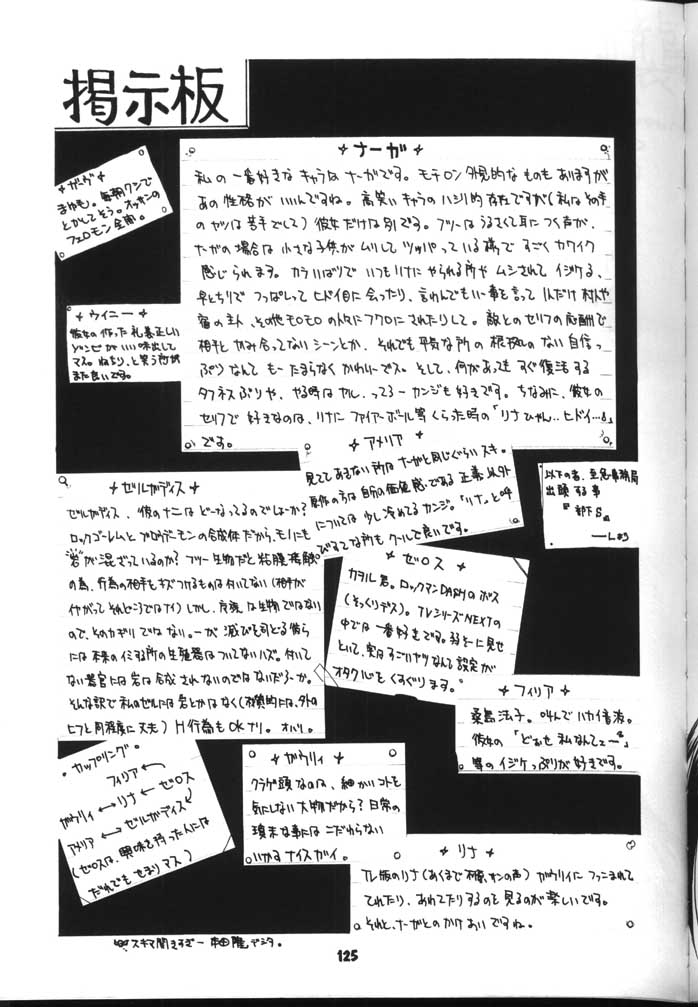 掲示板
✦ナーガ✦
私の一番好きなキャラはナーガです。モチロン外見的なものもありますが
あの性格がいいんですね。高笑いキャラのハシリ的存在ですが(私は
のヤツは苦手でして)彼女だけは別です。フツーはうるさくて耳につく声が、
ナーガの場合は小さな子供がムリしてツッパっている様ですごくカワイク
感じられます。カラいばりでいつもリナにやられる所やムシされてイジケる、
早とちりでつっぱしってヒドイ目に会ったり、言わんでもいー事を言って 村人や
宿の主人、その他モロモロの人々にフクロにされたりして。敵とのセリフの応酬で
相手とかみ合ってないシーンとか、それでも平気な所の根拠のない自信っ
ぷりなんてもーたまらなくかわいーでス。そして、何があってもすぐ復活する
タフネスぶりや、やる時はヤル…ってろーカンジも好きです。ちなみに、彼女の
セリフで好きなのは、リナにファイアーボール等くらった時の「リナひゃん…ヒドイ…」
です。
✦ガーヴ✦
まゆも。毎朝クシで
とかしてそう。オッサンの
フェロモン全開。
✦ウイニー✦
彼女の作った礼義正しい
ゾンビがいい味出して
マス。ねちり、と笑う
また良いです。
✦アメリア✦
見ててあきない所はナーガと同じぐらいスキ。
原作の方は自分の価値感である正義以外
については少し冷めてるカンジ。「リナ」と呼
びすてな所もクールで良いです。
✦ゼルガディス✦
ゼルガディス、彼のナニはどーなってるのでしょーか?
ロックゴーレムとブロウデーモンの合成体だから、モノにも
"岩"が混ざっているのか?フツー生物だと粘膜
の為、行為の相手をキズつけるものは付いてない(相手が
イヤがってそれどころではナイ)しかし、 は生物ではない
ので、そのカギリではない。一が滅びを司どる彼ら
には本来のイミする所の生殖器はついてないハズ。付いて
ない器官には岩は合成されないのではないだろーか。
そんな訳で私のゼルには岩とかはなく(材質的には、外の
ヒフと同程度に丈夫)H行為もOKナリ。オハリ。
以下の者、至急事務局
出頭する事
『部下S』
✦ゼロス
カヲル君。ロックマンDASHのボス
(そっくりデス)。TVシリーズNEXTの
中では一番好きです。弱そーに見せ
といて、実はすごいヤツなんて設定が
オタク心をくすぐります。
✦フィリア✦
桑島法子。叫んでハカイ音波。
彼女の「どぉせ私なんてェー」
等のイジケっぷりが好きです。
・カップリング・
フィリア
ガウリィ ←→ リナ ← ゼロス
アメリア ←→ ゼルガディス
(ゼロスは、興味を持った人には
だれでもせまりマス)
✦ガウリィ✦
クラゲ頭なのは、細かいコトを
気にしない大物だから?日常の
瑣末な事にはこだわらない
いかすナイスガイ。
✦リナ
TV版のリナ(あくまで林原サンの声)ガウリイにつっこまれて
てれたり、あわてたりするのを見るのが楽しいです。
それと、ナーガとのかけあいですね。
スキマ開きすぎー 本田 デシタ。
125